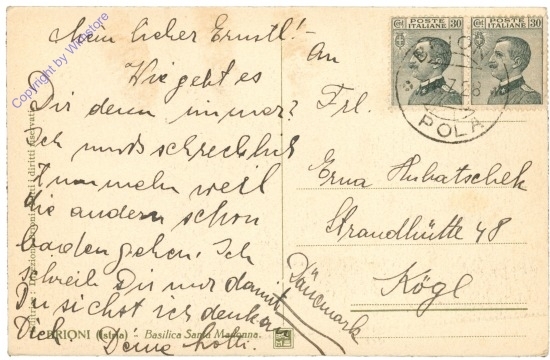 Mein lieber Ernstl!-
Wie geht es
Dir denn immer?
Ich muß schrecklich
weil
die andern schon
baden gehen. Ich
schreib Dir nur damit
Du siehst ich denk an
Dich Deine Lotti.
An
Frl.
Erna Hubatschek
Strandhütte 48
Kögl
Dänemark
POSTE ITALIANE 30
POSTE ITALIANE 30
POLA
BRIONI (Istria) - Basilica Santa Madonna.
diritti riservati
Copyright by Webstore